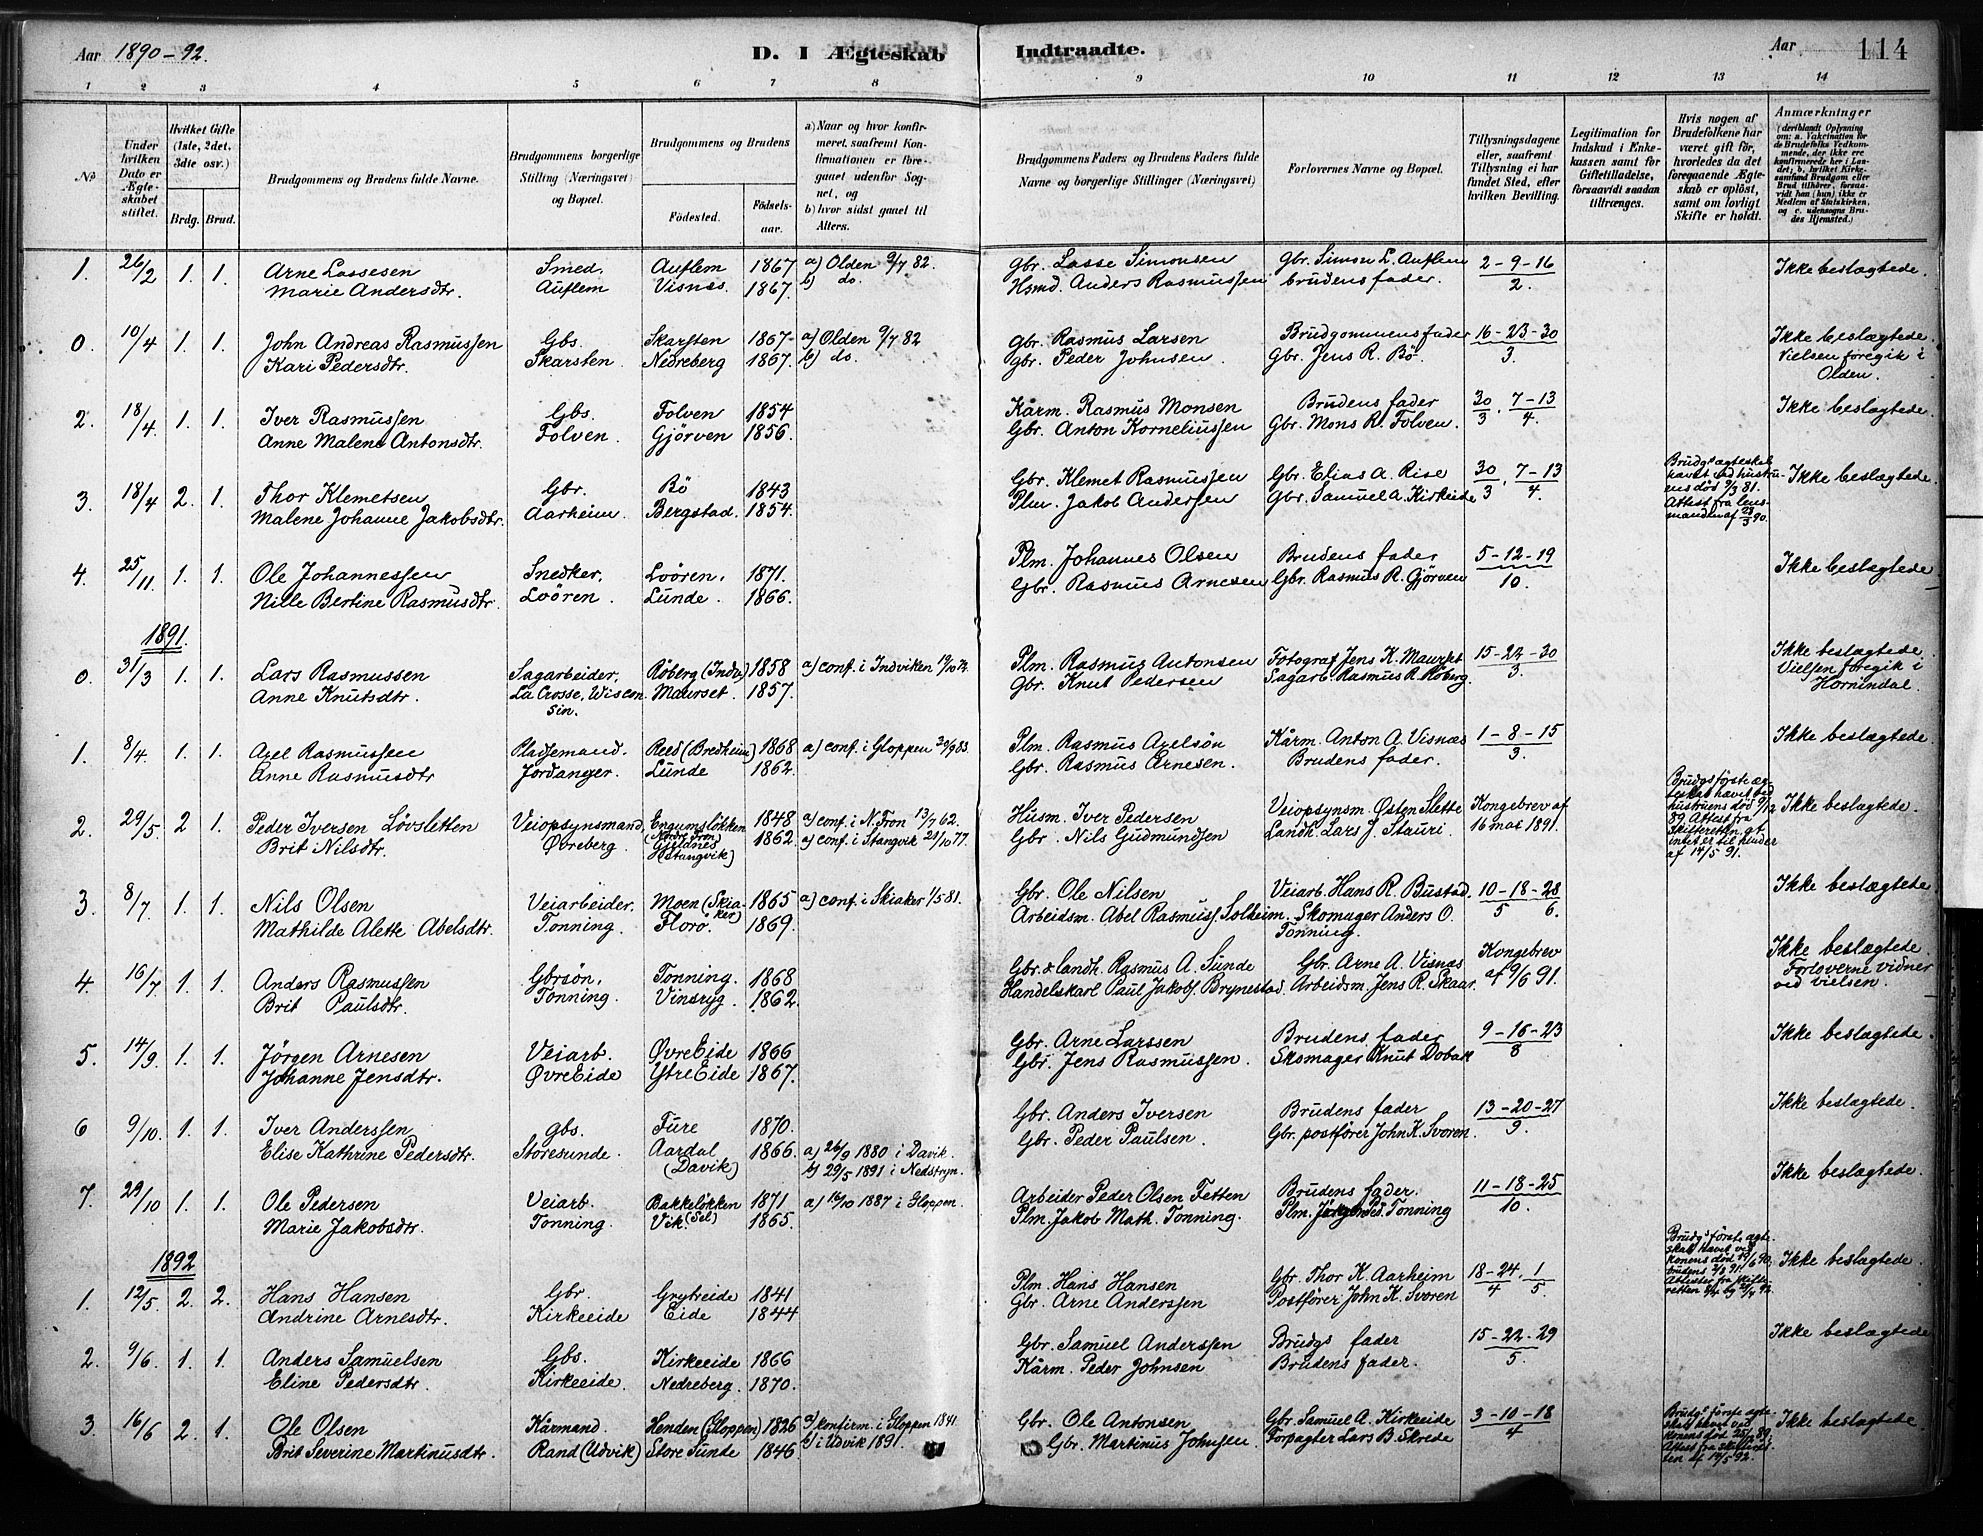 Aar 1890-92. D. I Ægteskab Indtraadte. Aar 114
1 2 3 4 5 6 7 8 9 10 11 12 13 14
No
Under hvilken Dato er Ægteskabet stiftet.
Hvilket Gifte (1ste, 2det, 3die osv.)
Brdg. Brud.
Brudgommens og Brudens fulde Navne.
Brudgommens borgerlige Stilling (Næringsvei) og Bopæl.
Brudgommens og Brudens
Födested. Födselsaar.
a) Naar og hvor konfirmeret, saafremt Konfirmationen er foregaaet udenfor Sognet, og
b) hvor sidst gaaet til Alters.
Brudgommens Faders og Brudens Faders fulde Navne og borgerlige Stillinger (Næringsvei)
Forlovernes Navne og Bopæl.
Tillysningsdagene eller, saafremt Tillysning ei har fundet Sted, efter hvilken Bevilling.
Legitimation for Indskud i Enkekassen samt for Giftetilladelse, forsaavidt saadan tiltrænges.
Hvis nogen af Brudefolkene har været gift för, hvorledes da det foregaaende Ægteskab er oplöst, samt om lovligt Skifte er holdt.
Anmærkninger
(deriblandt Oplysning om: a. Vaccination for de Brudefolks Vedkommende, der ikke ere konfirmerede her i Landet; b. hvilket Kirkesamfund Brudgom eller Brud tilhörer, forsaavidt han (hun) ikke er Medlem af Statskirken, og c. udensogns Brudes Hjemsted.)
1. 26/2 1. 1. Arne Lassesen Smed. Auflem 1867 a) Olden 9/7 82. Gbr. Lasse Simonsen Gbr. Simon L. Auflem 2-9-16 Ikke beslagtede.
Marie Andersdtr. Auflem Visnes. 1867. b) do. Hsmd. Anders Rasmussen brudens fader. 2.
0. 10/4 1. 1. John Andreas Rasmussen Gbs. Skarsten 1867 a) Olden 9/7 82 Gbr. Rasmus Larsen Brudgommens fader 16-23-30 Ikke beslagtede.
Kari Pedersdtr. Skarsten Nedreberg 1867. b) do. Gbr. Peder Johnsen. Gbr. Jens R. Bö. 3. Vielsen foregik i Olden.
2. 18/4. 1. 1. Iver Rasmussen Gbs. Folven 1854 Kårm. Rasmus Monsen Brudens fader 30/3, 7-13/4. Ikke beslagtede.
Anne Malene Antonsdtr. Folven. Gjörven 1856. Gbr. Anton Korneliussen Gbr. Mons R. Folven.
3. 18/4 2. 1. Thor Klemetsen Gbr. Bö 1843 Gbr. Klemet Rasmussen Gbr. Elias A. Rise 30/3, 7-13/4. Brudgs ægteskab hævet ved hustruens död 9/3 81. Attest fra lensmanden af 29/3 90. Ikke beslagtede.
Malene Johanne Jakobsdtr. Aarheim. Bergstad. 1854. Plm. Jakob Anderssen Gbr. Samuel A. Kirkeide
4. 25/11. 1. 1. Ole Johannessen Snedker. Loören. 1871. Plm. Johannes Olsen Brudens fader 5-12-19 Ikke beslagtede
Nille Bertine Rasmusdtr. Loören. Lunde. 1866. Gbr. Rasmus Arnesen Gbr. Rasmus R. Gjörven 10.
1891.
0. 31/3 1. 1. Lars Rasmussen Sagarbeider, Röberg (Indv.) 1858 a) conf. i Indviken Plm. Rasmus Antonsen Fotograf Jens K. Maurset 15-24-30 Ikke beslagtede.
Anne Knutsdtr. La Crosse, Wisconsin. Maurset. 1857. Gbr. Knut Pedersen Sagarb. Rasmus R. Röberg. 3. Vielsen foregik i Hornindal.
1. 8/4. 1. 1. Axel Rasmussen Pladsemand. Reed (Bredheim) 1868 a) conf. i Gloppen 30/9 83. Plm. Rasmus Axelsön Kårm. Anton A. Visnæs 1-8-15 Ikke beslagtede.
Anne Rasmusdtr Jordanger. Lunde 1862. Gbr. Rasmus Arnesen. Brudens fader. 3.
2. 29/5. 2 1. Peder Iversen Lövsletten Veiopsynsmand Engumslökken (Nordre Fron) 1848 a) conf. i N. Fron 13/7 62. Husm. Iver Pedersen Veiopsynsm. Östen Slette Kongebrev af Brudgs förste ægteskab hævet ved hustruens död 9/12 89. Attest fra skifteretten at intet er til hinder af 14/5 91. Ikke beslagtede.
Brit Nilsdtr. Övreberg. Gjeldnes (Stangvik) 1862. a) conf. i Stangvik 21/10 77. Gbr. Nils Gudmundsen Landh. Lars J. Stauri. 16 mai 1891.
3. 8/7 1. 1. Nils Olsen Veiarbeider. Moen (Skiaker) 1865 a) conf. i Skiaker 1/5 81. Gbr. Ole Nilsen Veiarb. Hans R. Bustad. 10-18/5-28/6. Ikke beslagtede.
Mathilde Alette Abelsdtr. Tonning. Florö. 1869. Arbeidsm. Abel Rasmuss. Solheim. Skomager Anders O. Tonning.
4. 16/7 1. 1. Anders Rasmussen Gbrsön. Tonning. 1868 Gbr. & landh. Rasmus A. Sunde Gbr. Arne A. Visnæs Kongebrev Ikke beslagtede
Brit Paulsdtr. Tonning. Vinsryg. 1862. Handelskarl Paul Jakobs. Brynestad. Arbeidsm. Jens R. Skaar. af 9/6 91. Forloverne vidner ved vielsen.
5. 14/9. 1. 1. Jörgen Arnesen Veiarb. Övre Eide 1866 Gbr. Arne Larssen Brudens fader 9-16-23 Ikke beslagtede.
Johanne Jensdtr. Övre Eide Ytre Eide 1867. Gbr. Jens Rasmussen. Skomager Knut Dobak 8
6 9/10. 1. 1. Iver Anderssen gbs. Fure 1870. Gbr. Anders Iversen Brudens fader 13-20-27 Ikke beslagtede.
Elise Kathrine Pedersdtr. Storesunde. Aardal (Davik) 1866. a) 26/9 1880 i Davik. b) 29/5 1891 i Nedstryn. Gbr. Peder Paulsen. Gbr. postförer John K. Svoren. 9.
7. 29/10 1. 1. Ole Pedersen Veiarb. Bakkelökken 1871 a) 16/10 1887 i Gloppen. Arbeider Peder Olsen Fetten Brudens fader. 11-18-25 Ikke beslagtede.
Marie Jakobsdtr. Tonning. Vik (Sel) 1865. Plm. Jakob Math. Tonning. Plm. Jörgen Ped. Tonning 10.
1892
1. 12/5. 2. 2. Hans Hansen Gbr. Grytreide 1841 Plm. Hans Hansen Gbr. Thor K. Aarheim 18-24/4. 1/5. Brudgs förste ægteskab hævet ved konens död 6 90, brudens 91. Attester fra skifteretten Ikke beslagtede.
Andrine Arnesdtr. Kirkeeide Eide 1844 Gbr. Arne Anderssen Postförer John K. Svoren
2. 9/6. 1. 1. Anders Samuelsen Gbs. Kirkeeide 1866 Gbr. Samuel Anderssen Brudgs fader 15-22-29 Ikke beslagtede
Eline Pedersdtr. Kirkeeide. Nedreberg. 1870. Kårm. Peder Johnsen Brudens fader. 5.
3. 16/6 2. 1. Ole Olsen Kårmand. Henden (Gloppen) 1826 a) konfirm. i Gloppen 1841. Gbr. Ole Antonsen Gbr. Samuel A. Kirkeeide 3-10-18 Brudgs förste ægteskab hævet ved konens död 25/2 89. Attest fra skifteretten af 19/5 92. Ikke beslagtede.
Brit Severine Martinusdtr. Rand (Udvik) Store Sunde 1846. b) i Udvik 1891. Gbr. Martinus Johnsen. Forpagter Lars B. Skrede 4